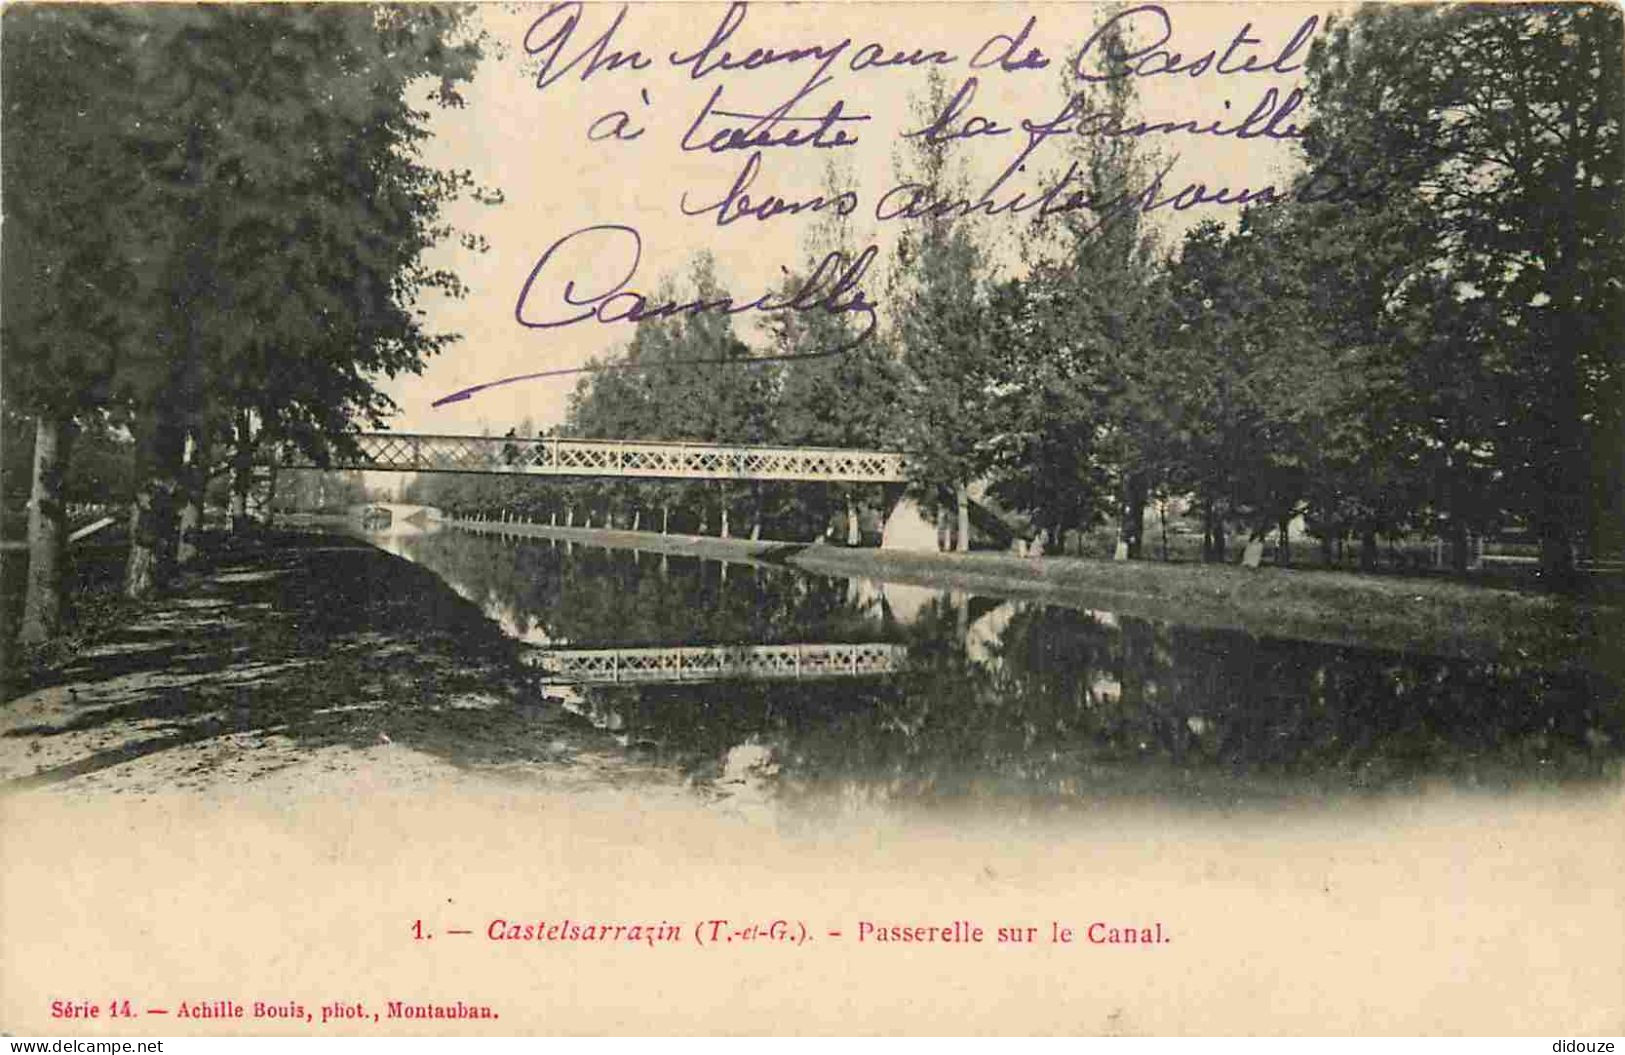 Un bonjour de Castel
à toute la famille
bons amitas pour tous
Camille
1. — Castelsarrazin (T.-et-G.). - Passerelle sur le Canal.
Série 14. — Achille Bouis, phot., Montauban.
www.delcampe.net
didouze